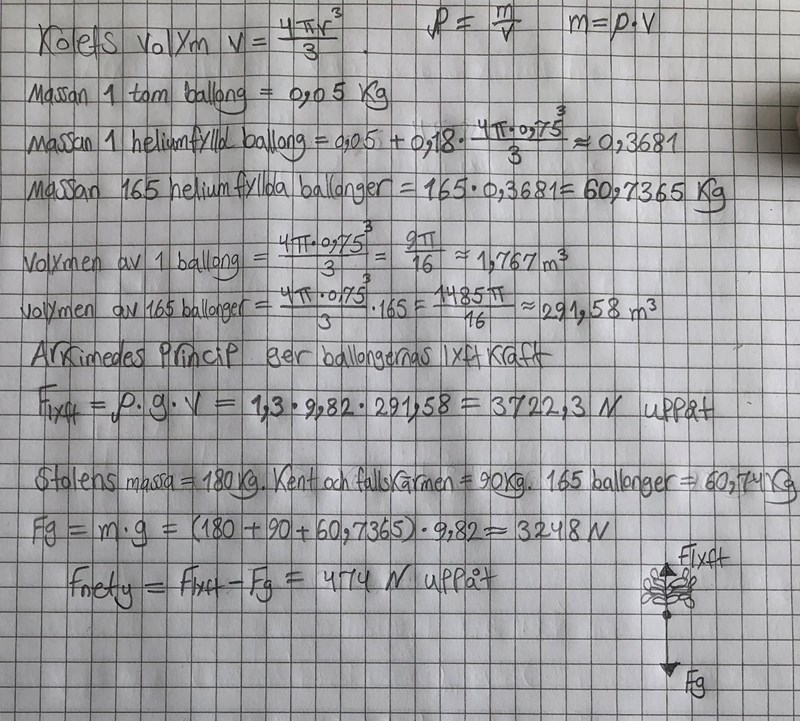 Klotets volym V = 4πr³/3. ρ = m/V m = ρ·V
Massan 1 tom ballong = 0,05 Kg
Massan 1 heliumfylld ballong = 0,05 + 0,18 · 4π·0,75³/3 ≈ 0,3681
Massan 165 heliumfyllda ballonger = 165·0,3681 = 60,7365 Kg
Volymen av 1 ballong = 4π·0,75³/3 = 9π/16 ≈ 1,767 m³
volymen av 165 ballonger = 4π·0,75³/3 · 165 = 1485π/16 ≈ 291,58 m³
Arkimedes Princip ger ballongernas lyftkraft
Flyft = ρ·g·V = 1,3·9,82·291,58 = 3722,3 N uppåt
Stolens massa = 180Kg. Kent och fallskärmen = 90Kg. 165 ballonger = 60,74Kg
Fg = m·g = (180 + 90 + 60,7365)·9,82 = 3248 N
Fnety = Flyft - Fg = 474 N uppåt
Flyft
Fg